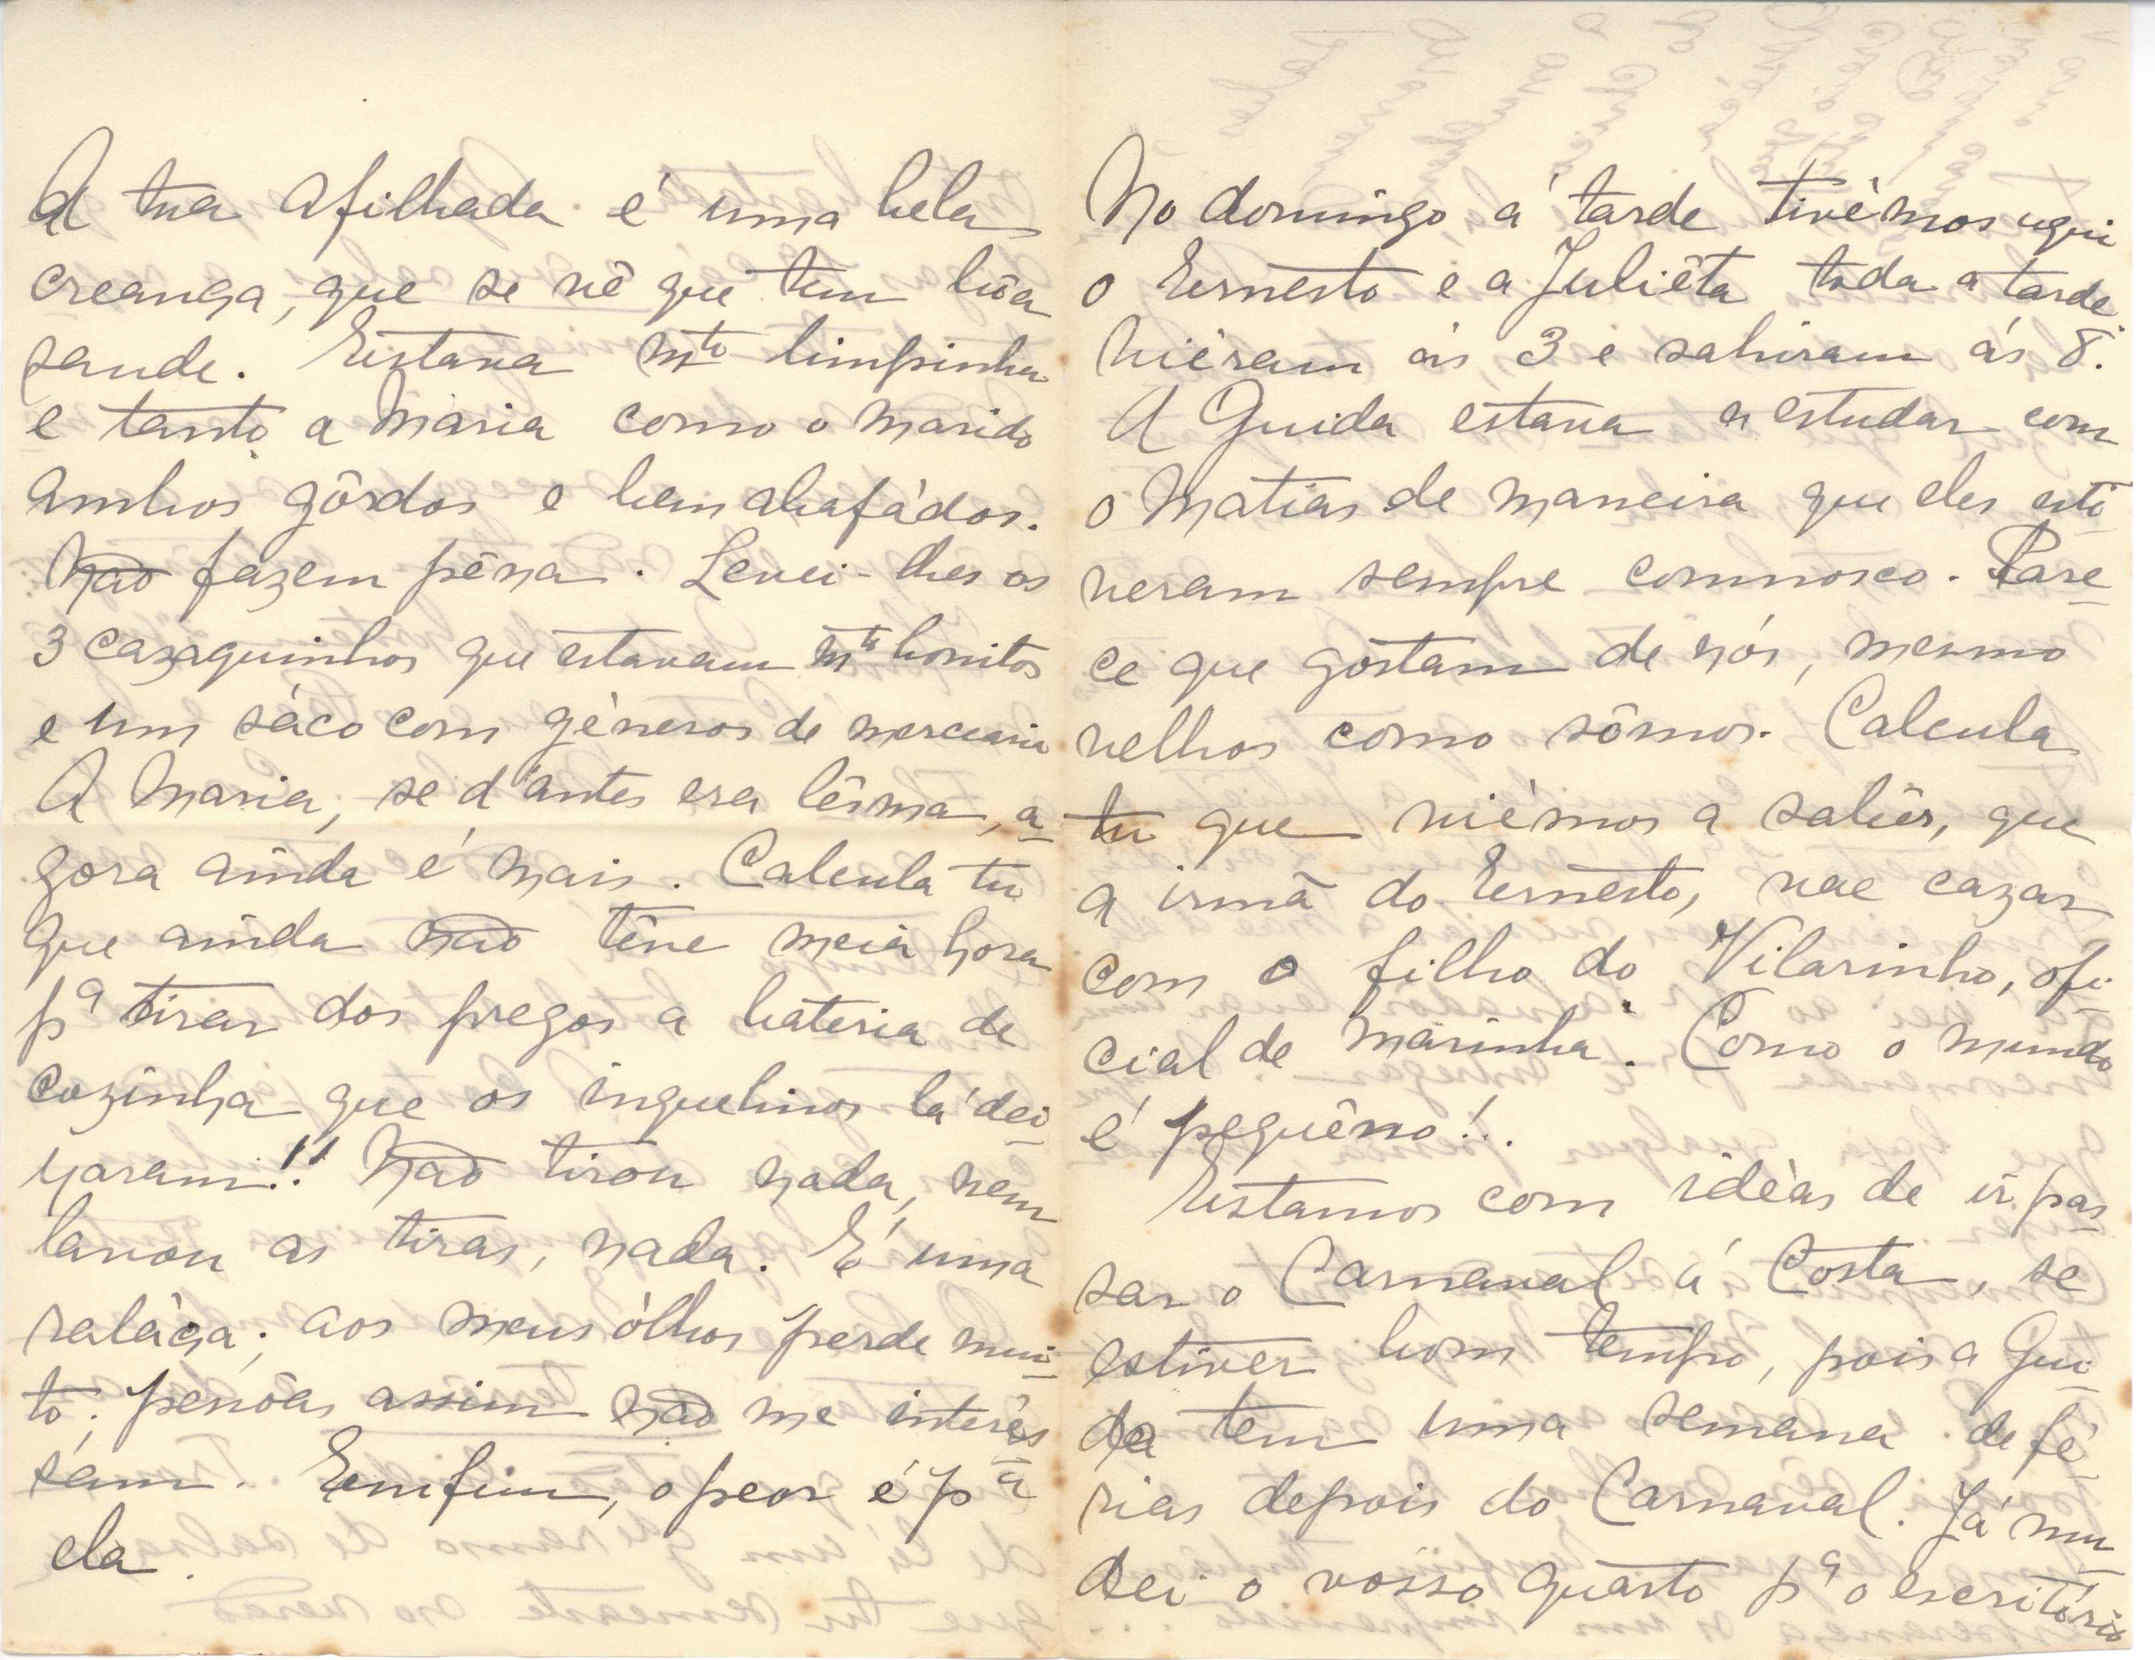 A tua afilhada é uma bela
creança, que se vê que tem bôa
saude. Estava mto limpinha
e tanto a Maria como o marido
ambos gôrdos e bem abafádos.
Não fazem pêna. Levei-lhes os
3 cazaquinhos que estavam mto bonitos
e um sáco com géneros de mercearia
A Maria, se d'antes era lêsma, a-
gora ainda é mais. Calcula tu
que ainda não têve meia hora
pª tirar dos pregos a bateria de
cozinha que os inquelinos lá dei-
xaram!! Não tirou nada, nem
lavou as tiras, nada. É uma
ralàça; aos meus ólhos perde mui-
to; pessôas assim não me interés
sam. Emfim, o peor é pª
ela.
No domingo á tarde tivémos aqui
o Ernesto e a Juliêta toda a tarde.
Viéram ás 3 e sahiram ás 8.
A Guida estava a estudar com
o Matias de maneira que eles esti-
veram sempre comnosco. Pare-
ce que góstam de nós, mesmo
velhos como sômos. Calcula
tu que viémos a sabêr, que
a irmã do Ernesto, vae cazar
com o filho do Vilarinho, ofi-
cial de marinha. Como o mundo
é pequêno!..
Estamos com idéas de ir pas-
sar o Carnaval á Costa, se
estiver bom tempo, pois a Gui-
da tem uma semana de fé-
rias depois do Carnaval. Já mu-
dei o vósso quarto pª o escritório